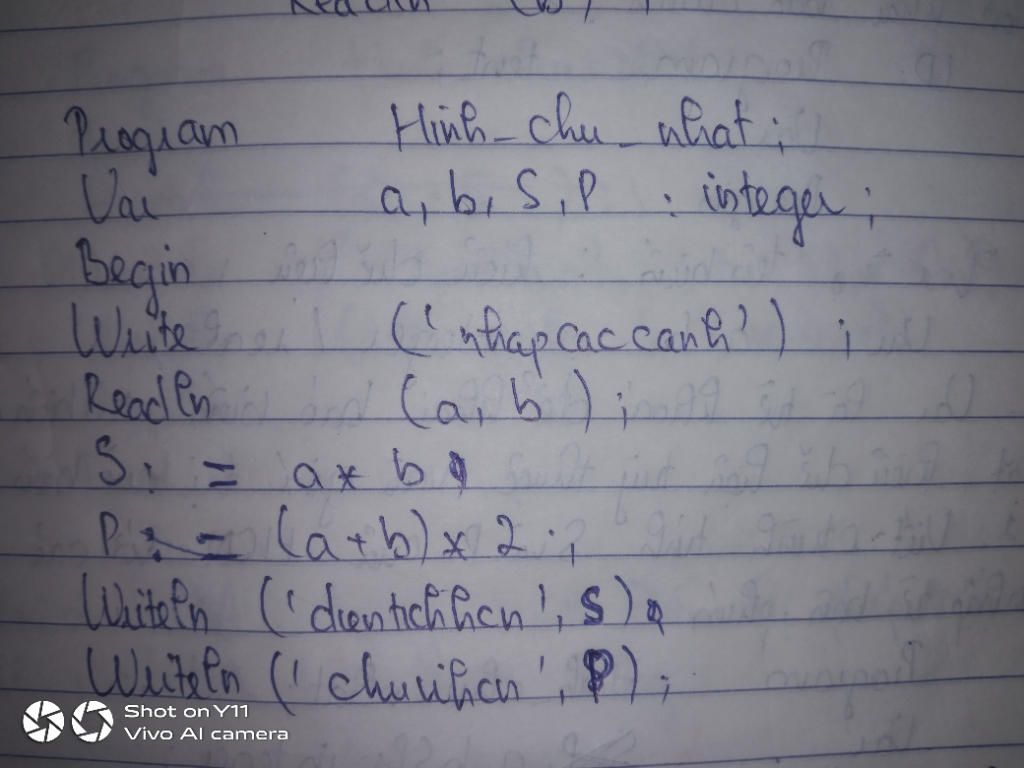 Readln (b) ;
Program Hinh_chu_nhat ;
Var a, b, S, P : integer ;
Begin
Write ('nhapcaccanh') ;
Readln (a, b) ;
S := a * b ;
P := (a + b) * 2 ;
Writeln ('dientichhcn', S) ;
Writeln ('chuvihcn', P) ;
Shot on Y11
Vivo AI camera